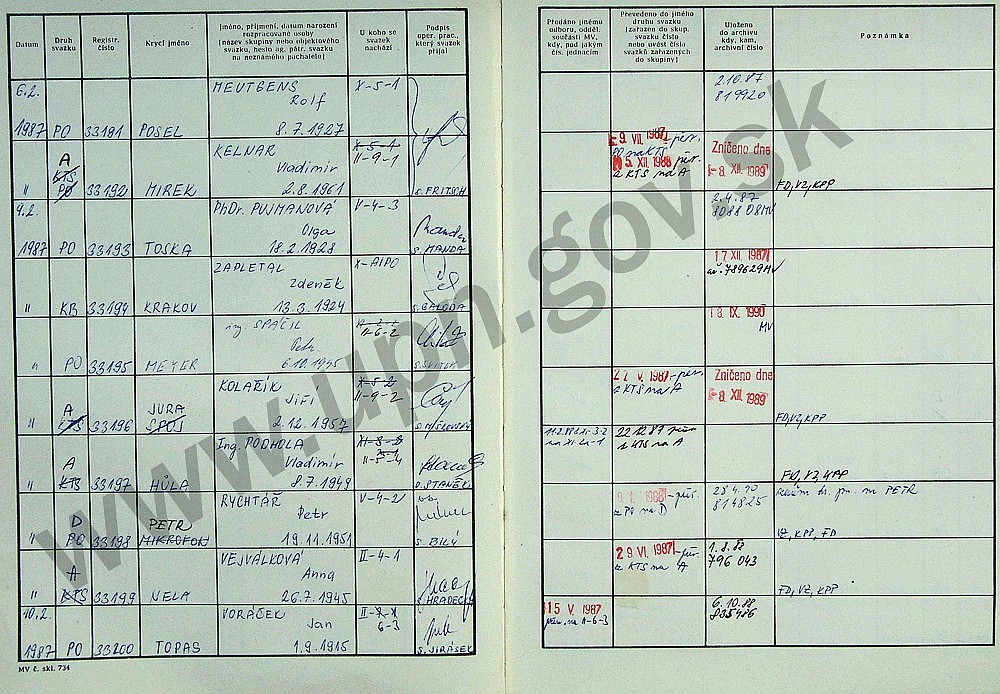 Datum
Druh svazku
Registr. číslo
Krycí jméno
Jméno, příjmení, datum narození
rozpracované osoby
(název skupiny nebo objektového
svazku, heslo ag. pátr. svazku
na neznámého pachatele)
U koho se
svazek
nachází
Podpis
oper. prac.,
který svazek
přijal
Předáno jinému
odboru, odděl.
součásti MV,
kdy, pod jakým
čís. jednacím
Převedeno do jiného
druhu svazku
(zařazen do skup.
svazku číslo
nebo uvést čísla
svazků zařazených
do skupiny)
Uloženo
do archívu
kdy, kam,
archivní číslo
Poznámka
6.2.
1987 PO 33191 POSEL
MEUTGENS
Rolf
8.7.1927
X-5-1
2.10.87
819920
A
KTS
PO
" 33192 MIREK
KELNAR
Vladimír
2.8.1961
X-5-1
II-9-1
S. FRITSCH
9. VII. 1987 - přev.
PO na KTS
5. XII. 1988 přv.
z KTS na A
Zničeno dne
- 8. XII. 1989
FD, VZ, KPP
9.2.
1987 PO 33193 TOSKA
PhDr. PUJMANOVÁ
Olga
18.2.1928
V-4-3
S. MANDA
2.4.87
8088 08MV
" KB 33194 KRAKOV
ZAPLETAL
Zdeněk
13.3.1924
X-AIPO
S. BALODA
17 XII. 1987
ař. 789629MV
" PO 33195 MEYER
ing. SPÁČIL
Petr
6.10.1945
II-6-2
18. IX. 1990
MV
A
KTS
" 33196 JURA
SPOJ
KOLAŘÍK
Jiří
2.12.1957
X-5-2
II-9-2
S. MYSLOVSKÝ
27. V. 1987 - přv.
z KTS na A
Zničeno dne
- 8. XII. 1989
FD, VZ, KPP
A
" KTS 33197 HŮLA
Ing. PODHOLA
Vladimír
8.7.1949
II-5-4
S. STANĚK
22.12.87
z KTS na A
FD, VZ, KPP
D
" PO 33198 PETR
MIKROFON
RYCHTÁŘ
Petr
19.11.1951
V-4-2
S. BILÝ
9. I. 1988 - přv.
z PO na D
25.4.90
814825
PETR
VZ, KPP, FD
A
" KTS 33199 NELA
VEJVÁLKOVÁ
Anna
26.7.1945
II-4-1
S. HRADECKÝ
29. VI. 1987 - přv.
z KTS na A
1.8.88
796 043
FD, VZ, KPP
10.2.
1987 PO 33200 TOPAS
VORÁČEK
Jan
1.9.1915
6-3
S. JIRÁSEK
15 V. 1987
přv. na II-6-3
6.10.88
835486
MV č. skl. 734
www.upn.gov.sk